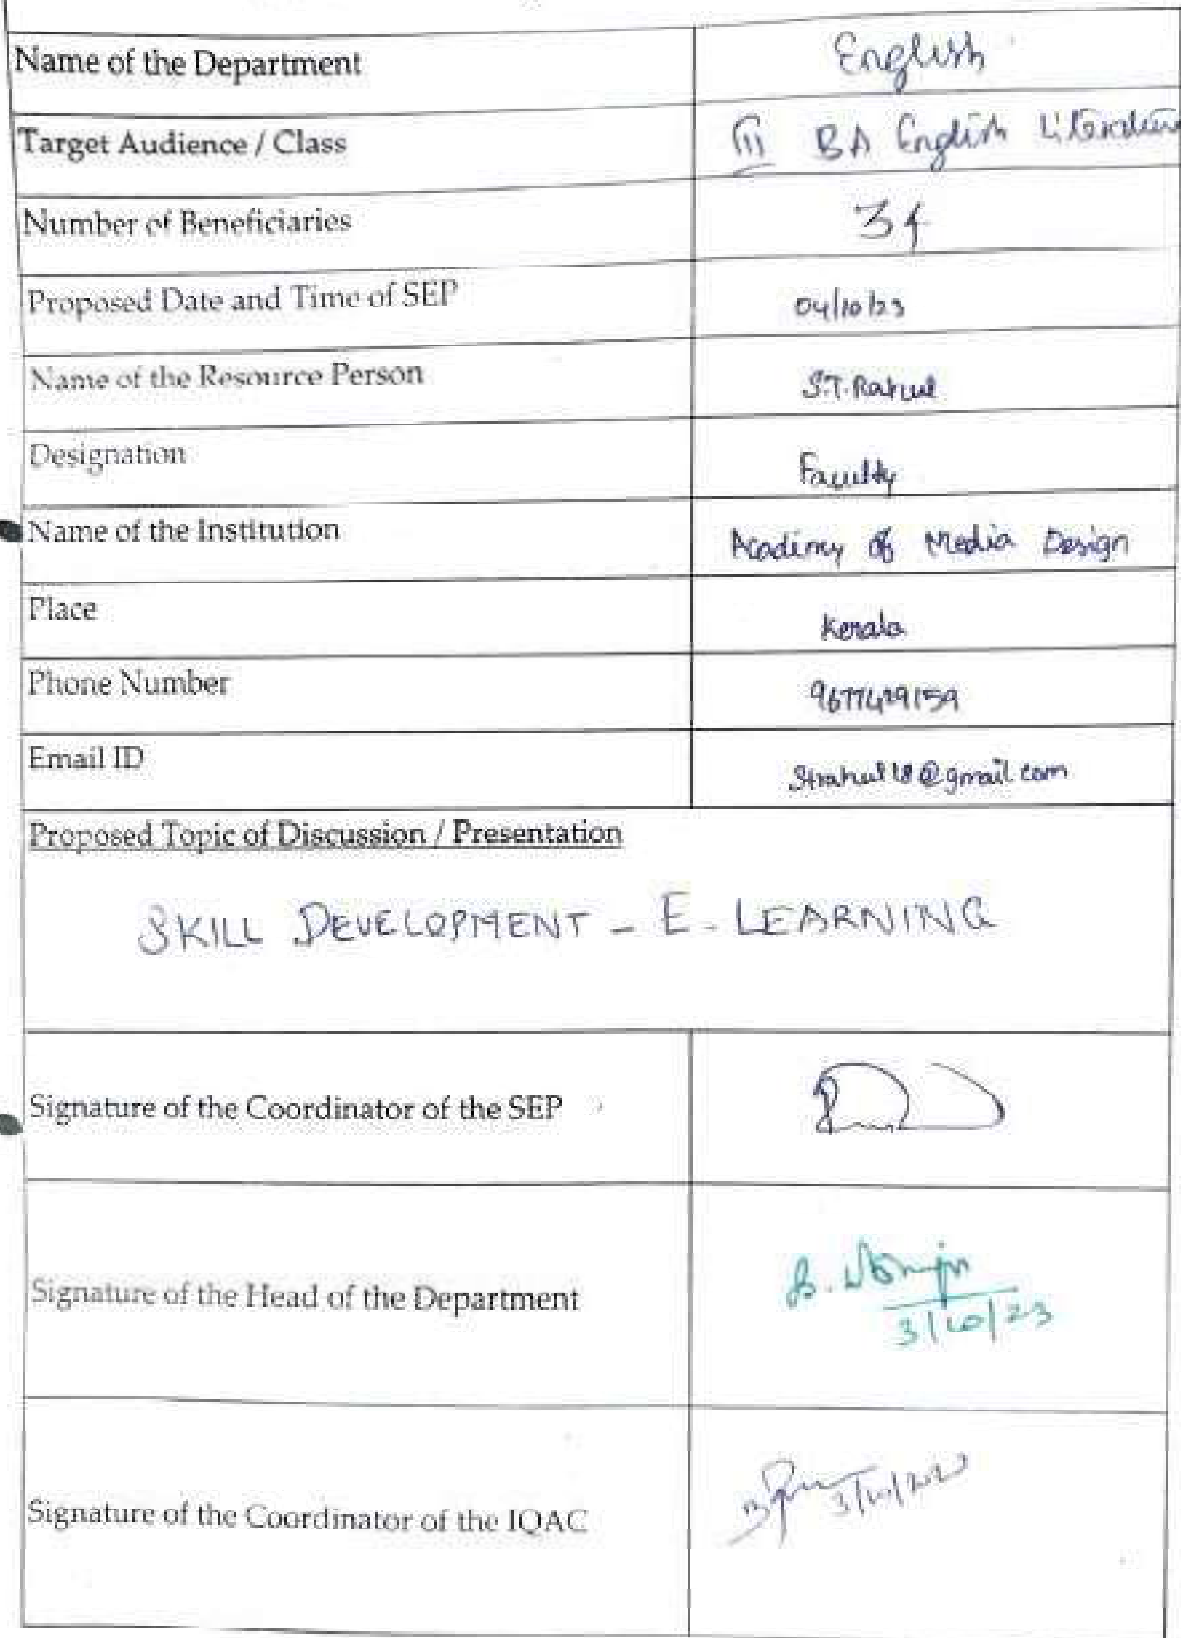 Name of the Department English
Target Audience / Class III BA English Literature
Number of Beneficiaries 34
Proposed Date and Time of SEP 04/10/23
Name of the Resource Person S.T. Rahul
Designation Faculty
Name of the Institution Academy of Media Design
Place Kerala
Phone Number
Email ID
Proposed Topic of Discussion / Presentation
SKILL DEVELOPMENT - E - LEARNING
Signature of the Coordinator of the SEP
Signature of the Head of the Department
3/10/23
Signature of the Coordinator of the IQAC 3/10/2023